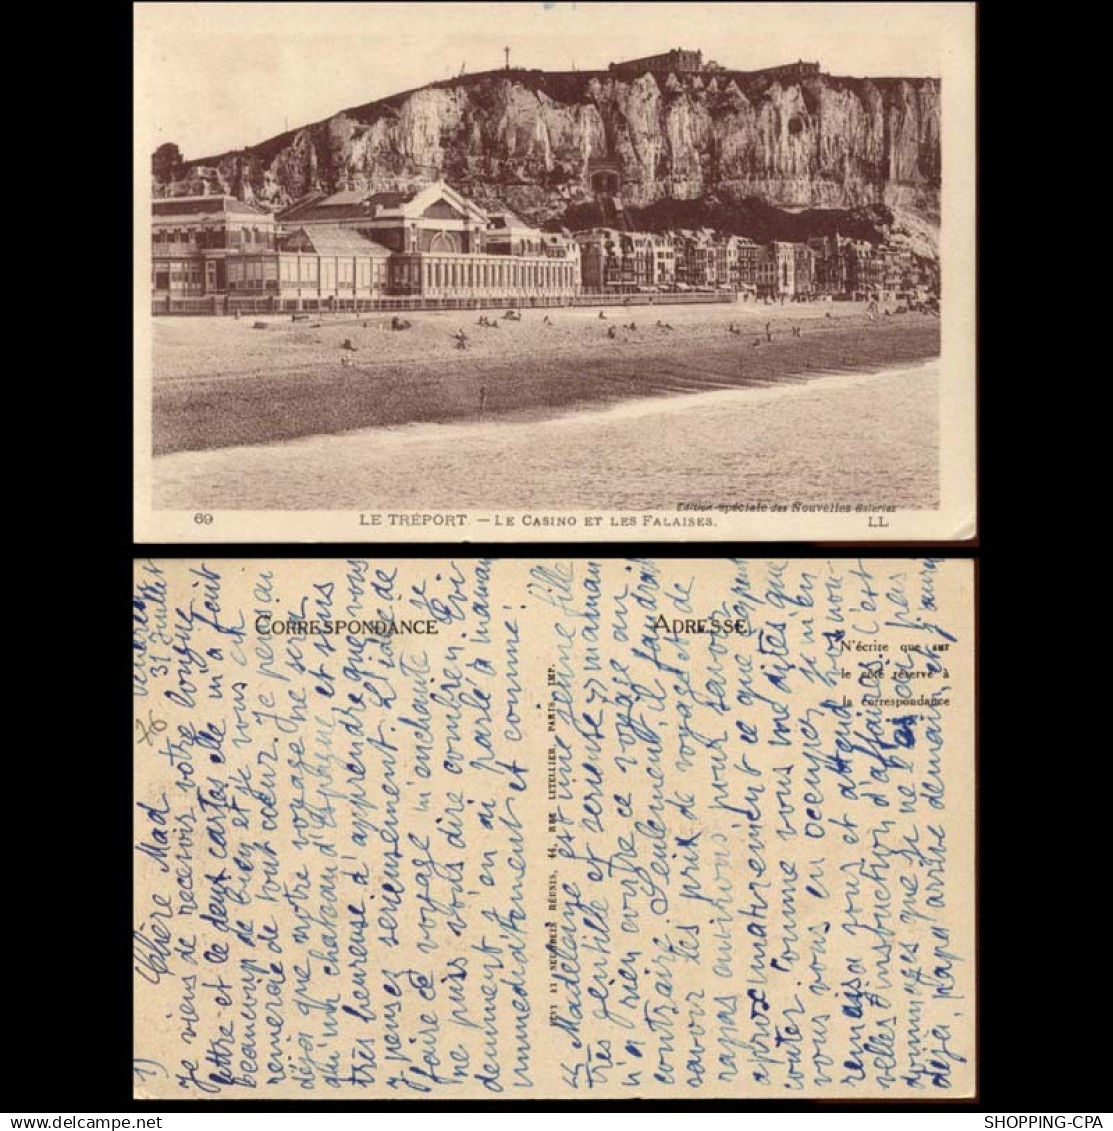 Edition spéciale des Nouvelles Galeries
69
LE TRÉPORT — LE CASINO ET LES FALAISES.
LL
CORRESPONDANCE
ADRESSE
N'écrire que sur
le côté réservé à
la correspondance
LEVY ET NEURDEIN RÉUNIS, 44, RUE LETELLIER, PARIS, IMP.
1) Chère Mad
31 Juillet
Je viens de recevoir votre longue
lettre et le deux cartes elle m'a fait
beaucoup de bien et je vous et
remercie de tout cœur. Je peur au
déja que notre voyage ne sera
qu'un chateau d'Espagne, et suis
très heureuse d'apprendre que vous
y pensez serieusement. L'idée de
faire ce voyage m'enchante je
ne puis vous dire combien. Evi
demment j'en ai parlé à maman
immediatement et comme
"Madelaine est une jeune fille
très gentille et serieuse" maman
n'a rien contre ce voyage au
contraire. Seulement il faudrait
savoir les prix de voyage et de
repas environs pour savoir
aproximativement ce que ça peut
couter. Comme vous me dites que
vous vous en occupez je m'en
remets à vous et attend vos nou-
velles d'instruction d'affaires. C'est
dommages que je ne l'ai pas
déjà, papa arrive demain, et j'aurai
SHOPPING-CPA